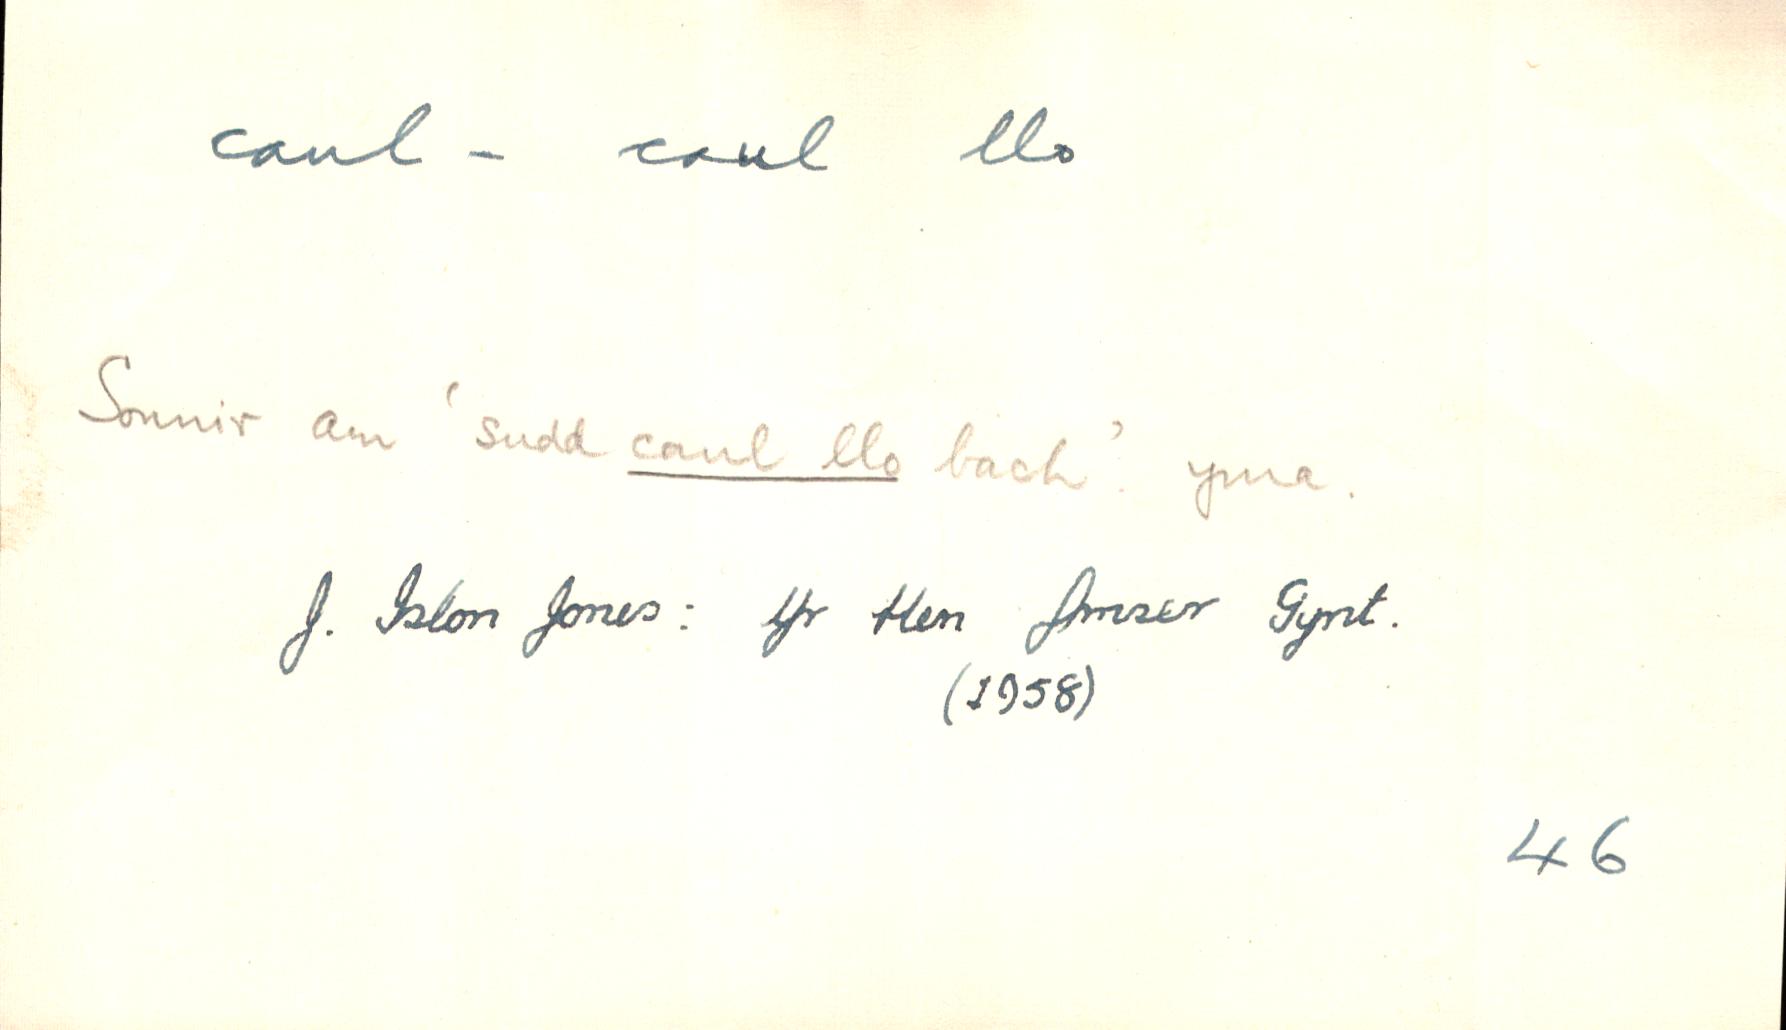 caul - caul llo
Sonnir am 'sudd caul llo bach'. yma.
J. Islon Jones: Yr Hen Amser Gynt.
(1958)
46